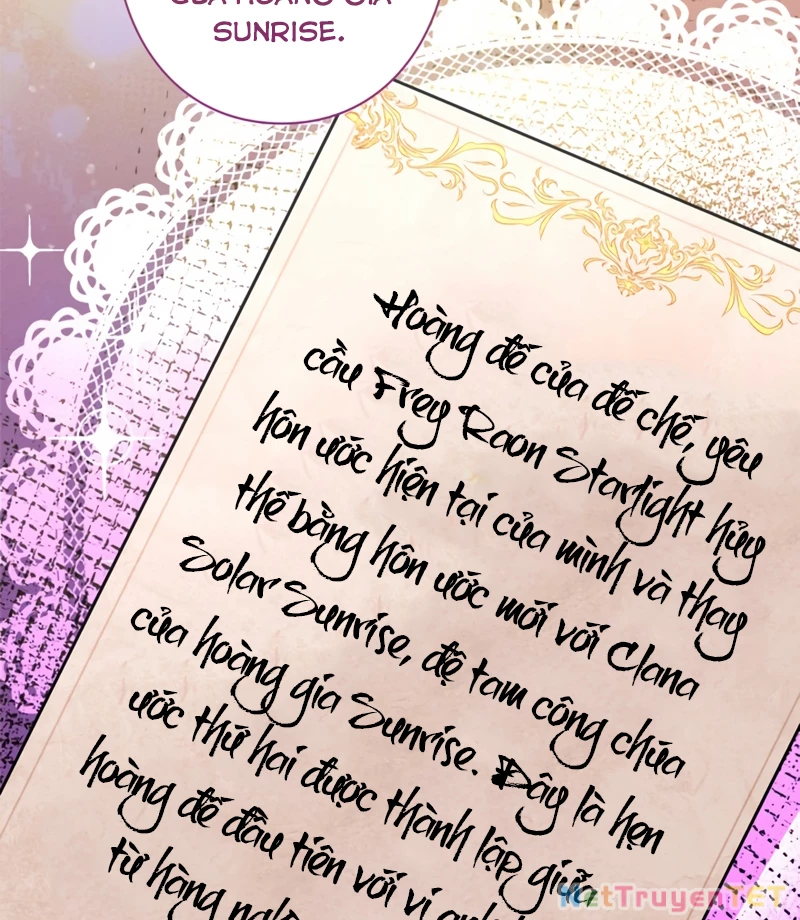 CỦA HOÀNG GIA
SUNRISE.
Hoàng đế của đế chế, yêu
cầu Frey Raon Starlight hủy
hôn ước hiện tại của mình và thay
thế bằng hôn ước mới với Clana
Solar Sunrise, đệ tam công chúa
của hoàng gia Sunrise. Đây là hẹn
ước thứ hai được thành lập giữa
hoàng đế đầu tiên với vị anh
từ hàng
NetTruyenTET